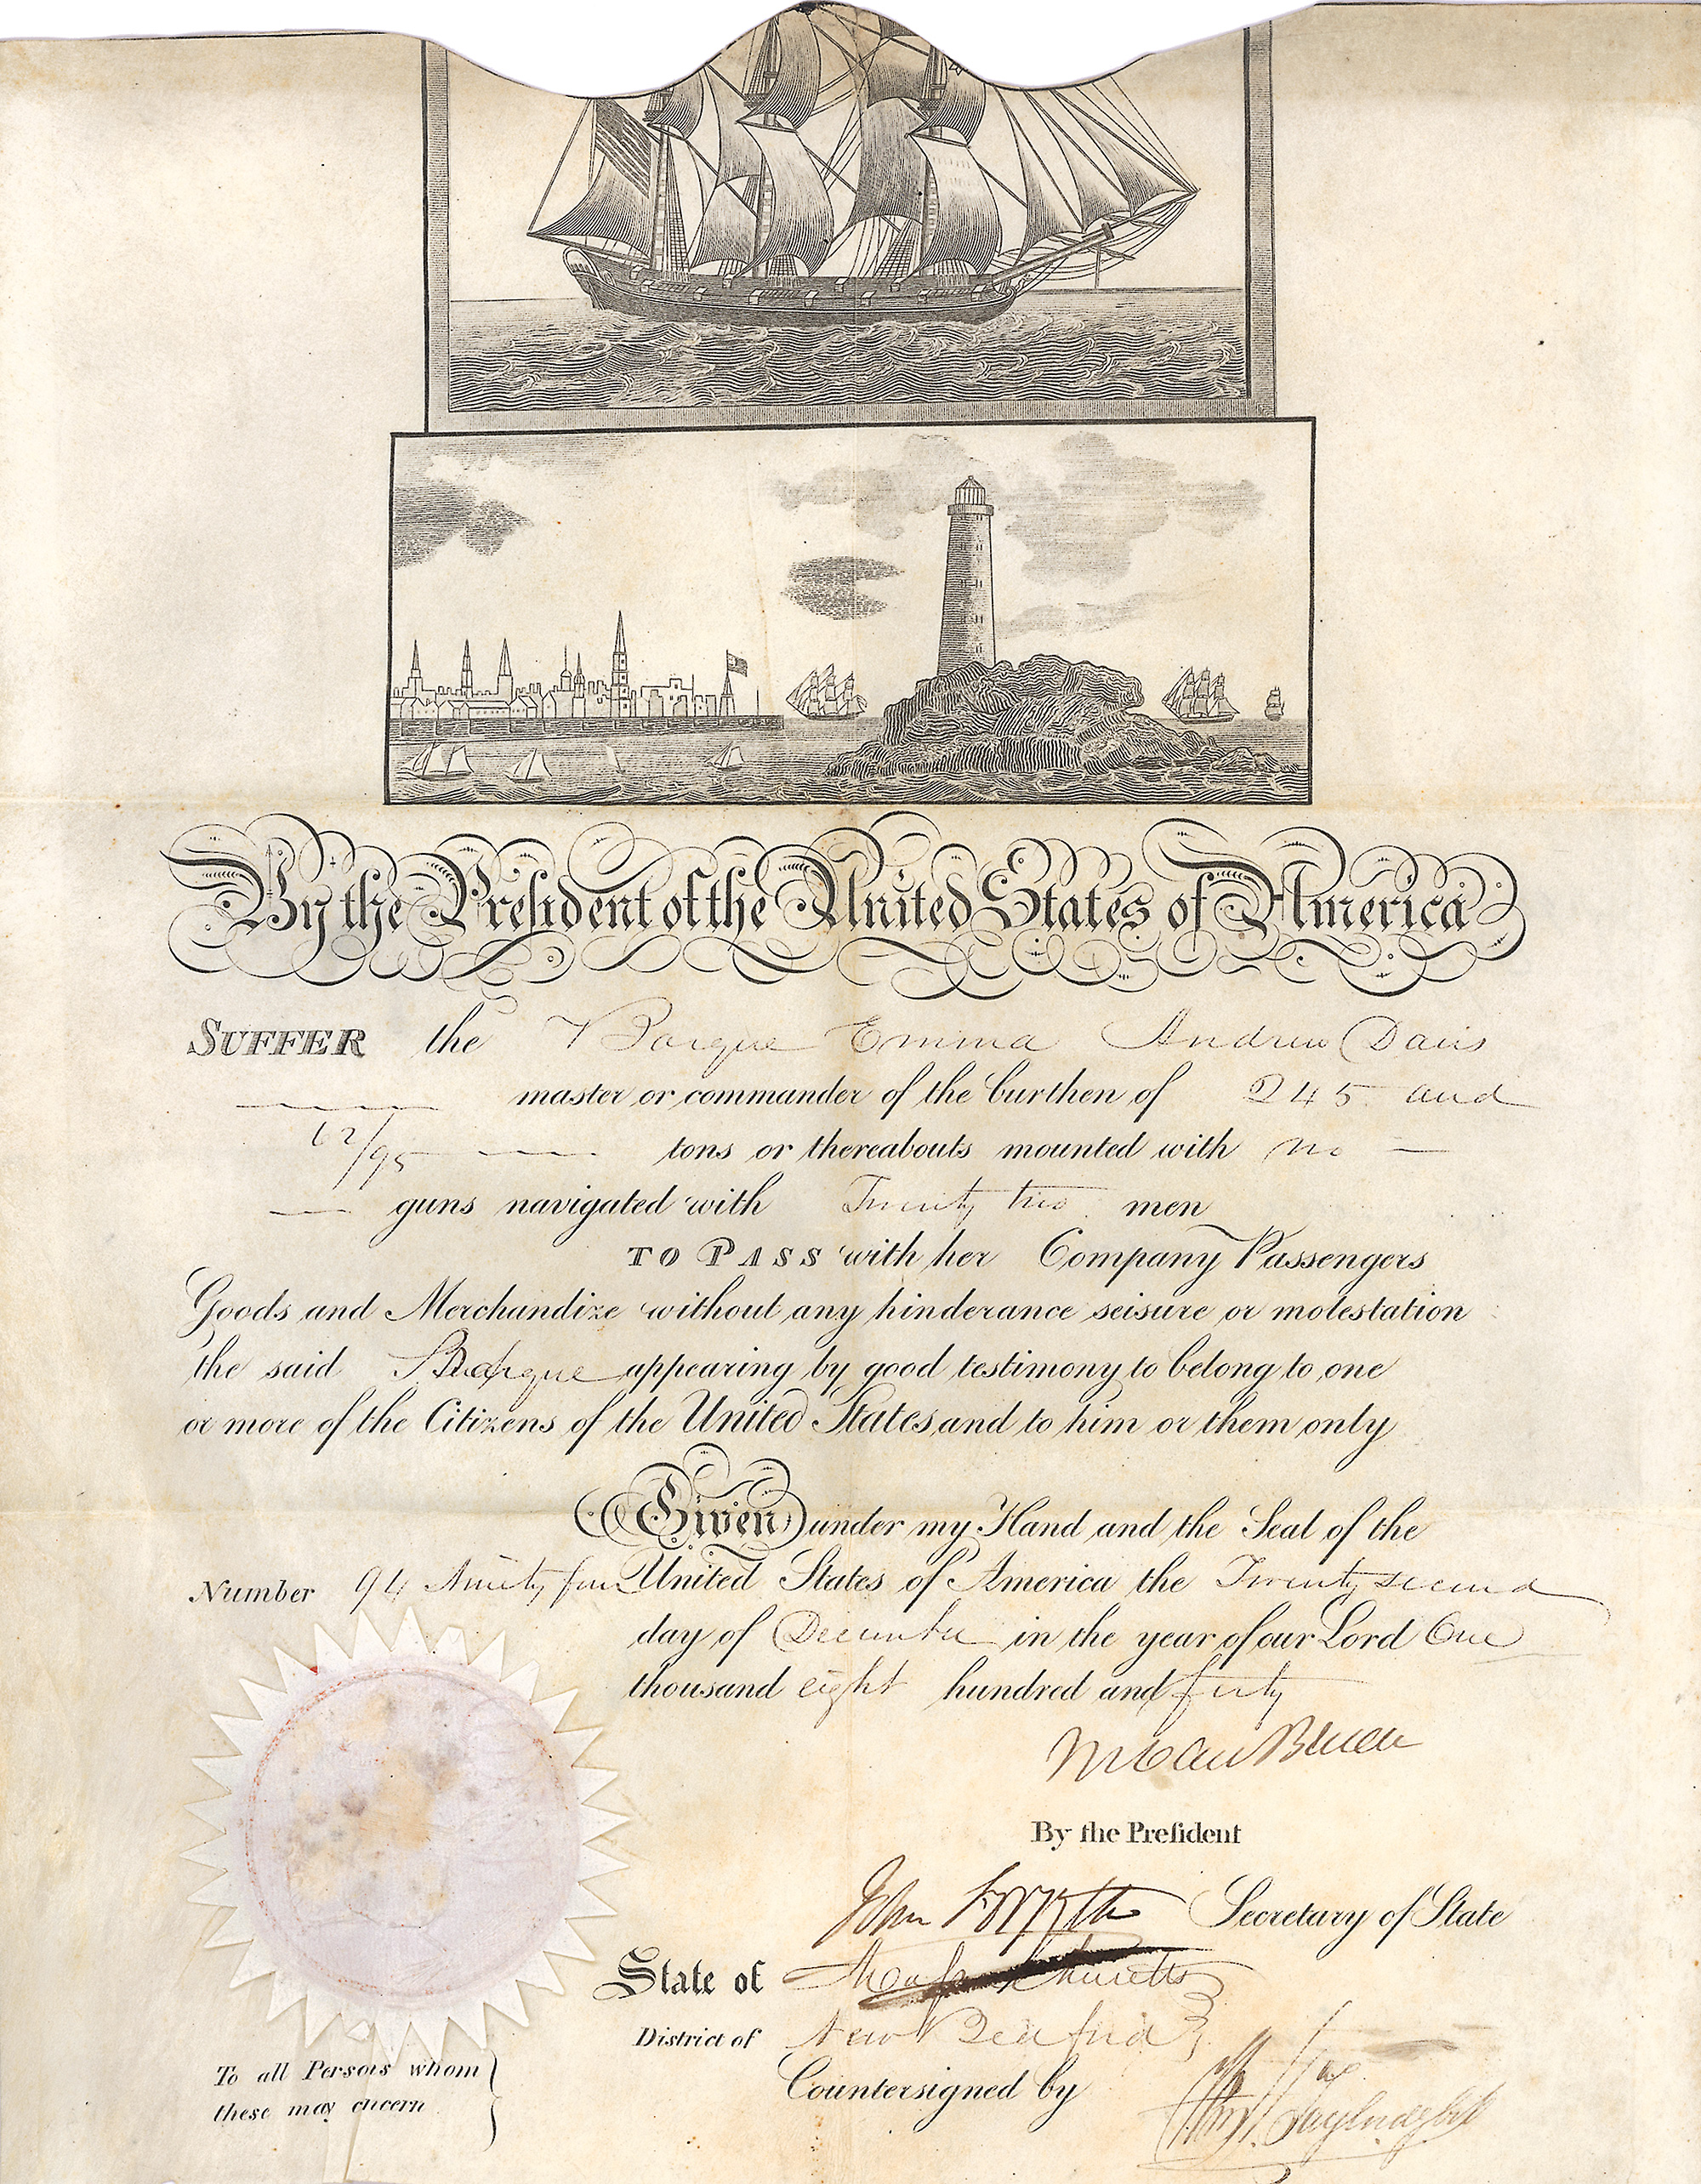 By the President of the United States of America
SUFFER the Barque Emma Andrew Davis
master or commander of the burthen of 245 and
62/95 tons or thereabouts mounted with no
guns navigated with Twenty two men
TO PASS with her Company Passengers
Goods and Merchandize without any hinderance seisure or molestation
the said Barque appearing by good testimony to belong to one
or more of the Citizens of the United States and to him or them only
Given under my Hand and the Seal of the
Number 94 Ninety four United States of America the Twenty second
day of December in the year of our Lord One
thousand eight hundred and forty
M Van Buren
By the President
John Forsyth Secretary of State
State of Massachusetts
District of New Bedford
Countersigned by
To all Persons whom
these may cncern